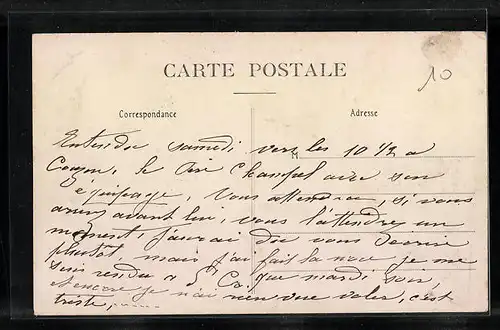 CARTE POSTALE
10
Correspondance
Adresse
M
Entendu samedi vers les 10 1/2 a
le Pere Chanpal avec son
équipage, vous attendra, si vous
arrivez avant lui, vous l'attendrez un
moment, j'aurai du vous écrire
plutôt, mais j'ai fait la noce je me
suis rendu a St Co. que mardi soir,
et encore je n'ai rien vue voler, c'est
triste,